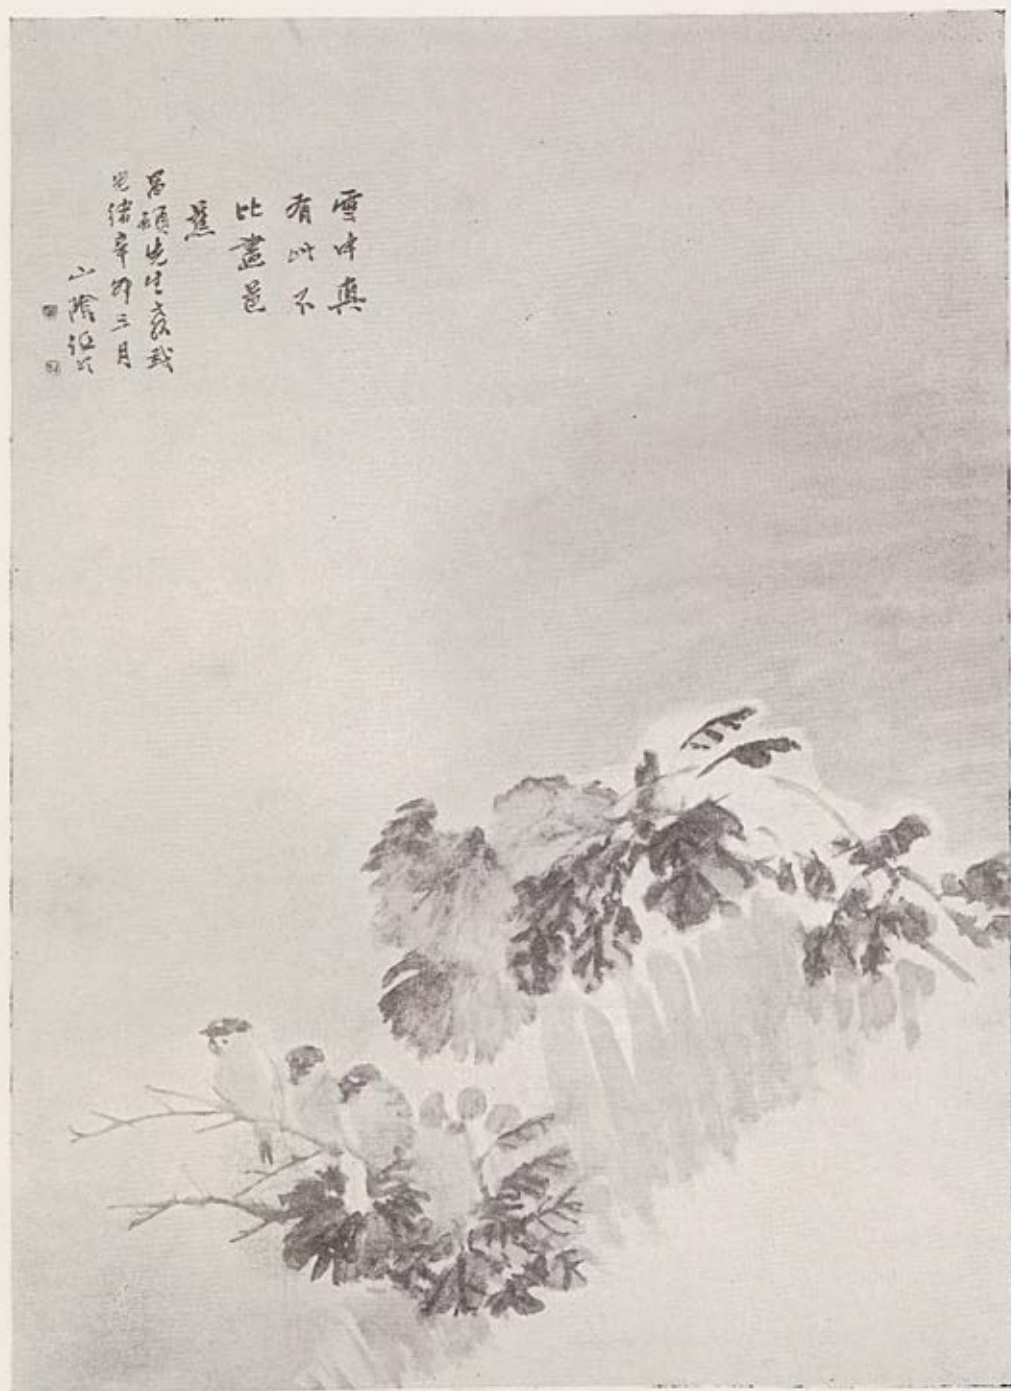 雪中真
有此不
比畫芭
蕉
昌碩先生教我
光緒辛卯三月
山陰任頤